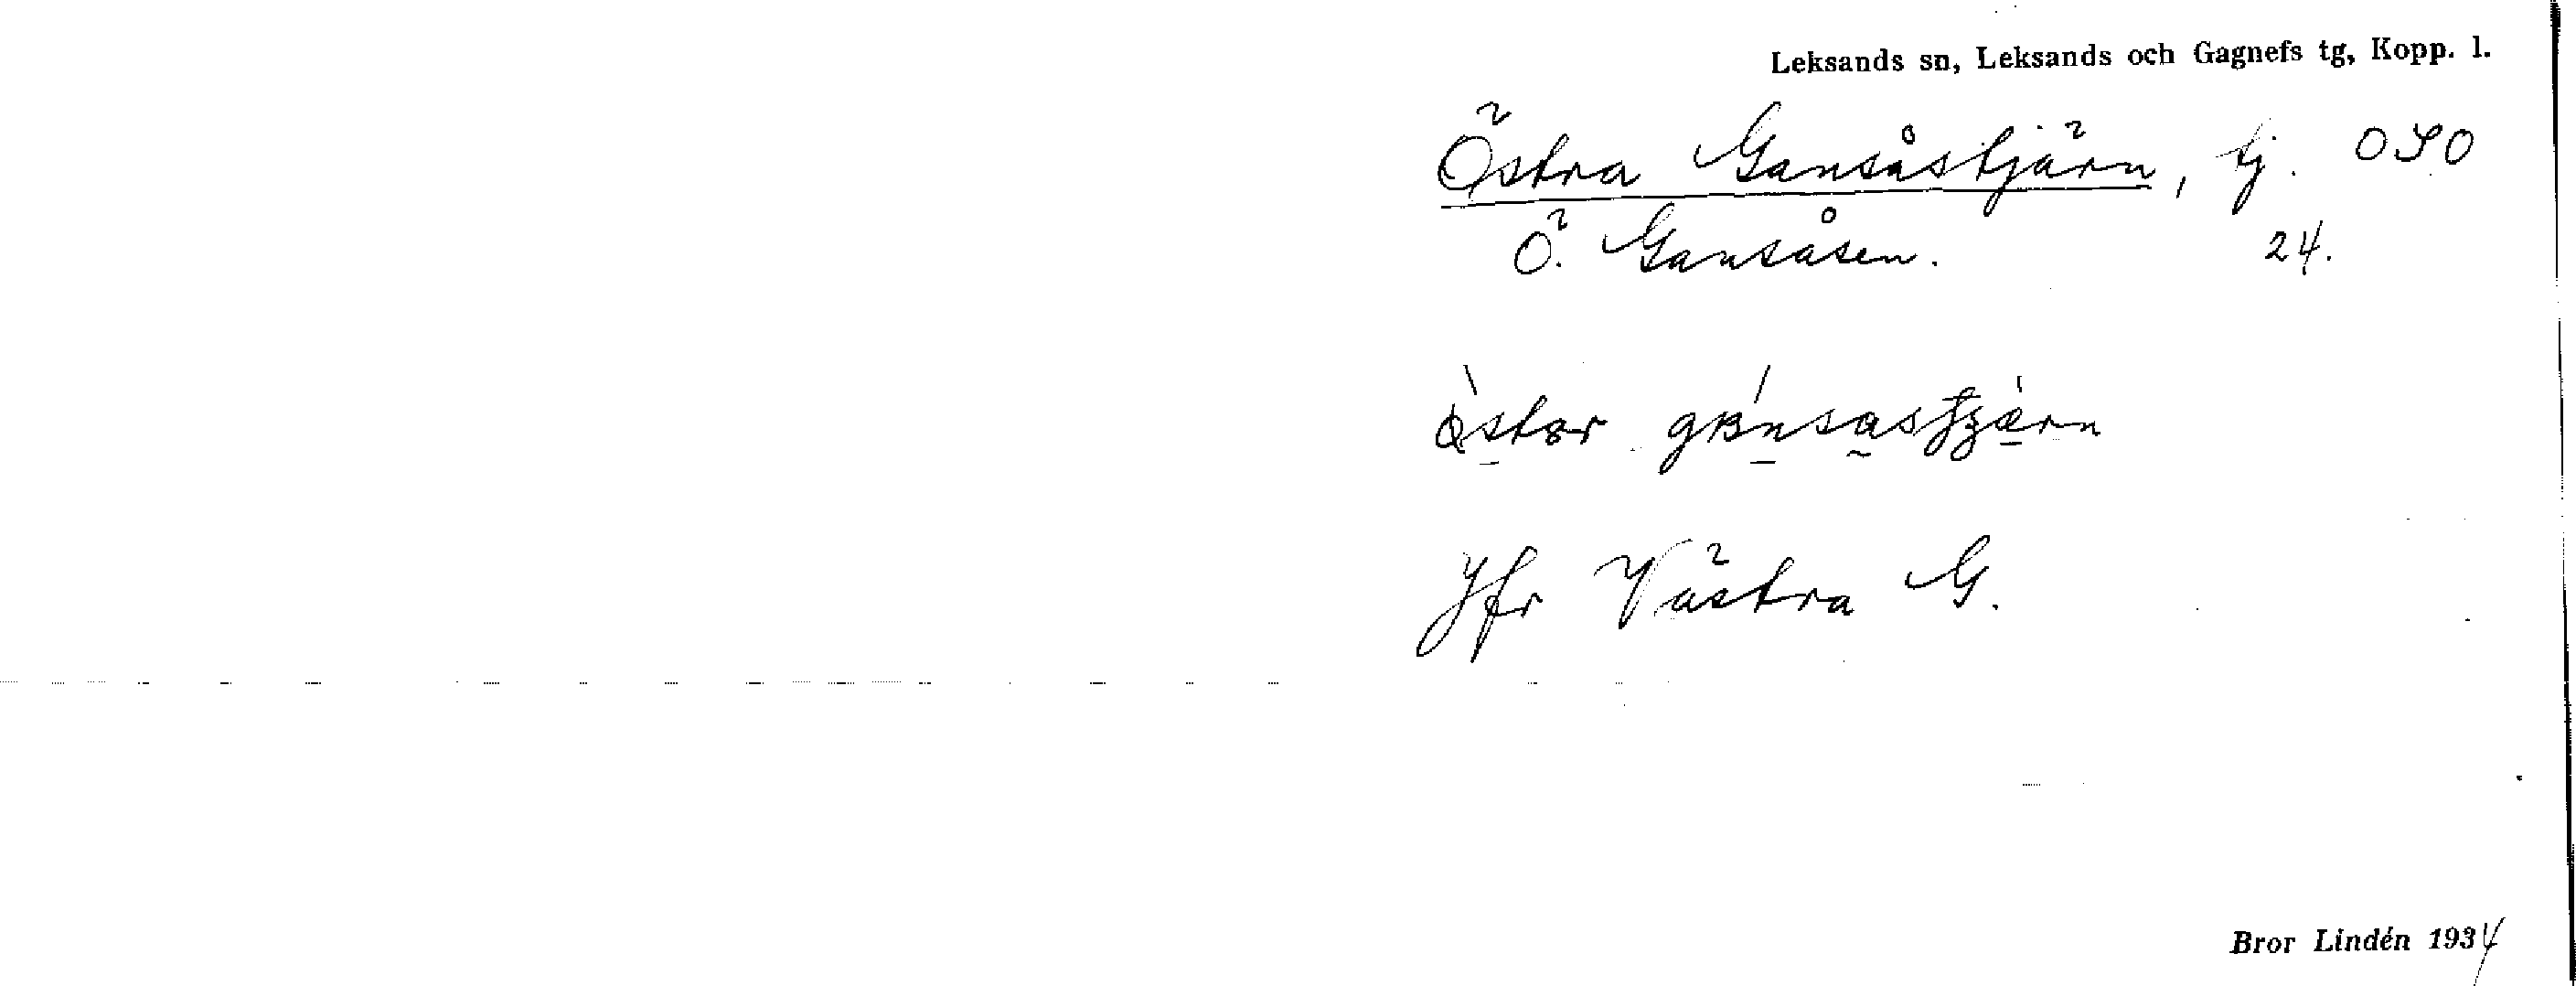 Leksands sn, Leksands och Gagnefs tg, Kopp. l.
Östra Gansåstjärn, tj. OSO
Ö. Gansåsen. 24.
Jfr Västra G.
Bror Lindén 1934